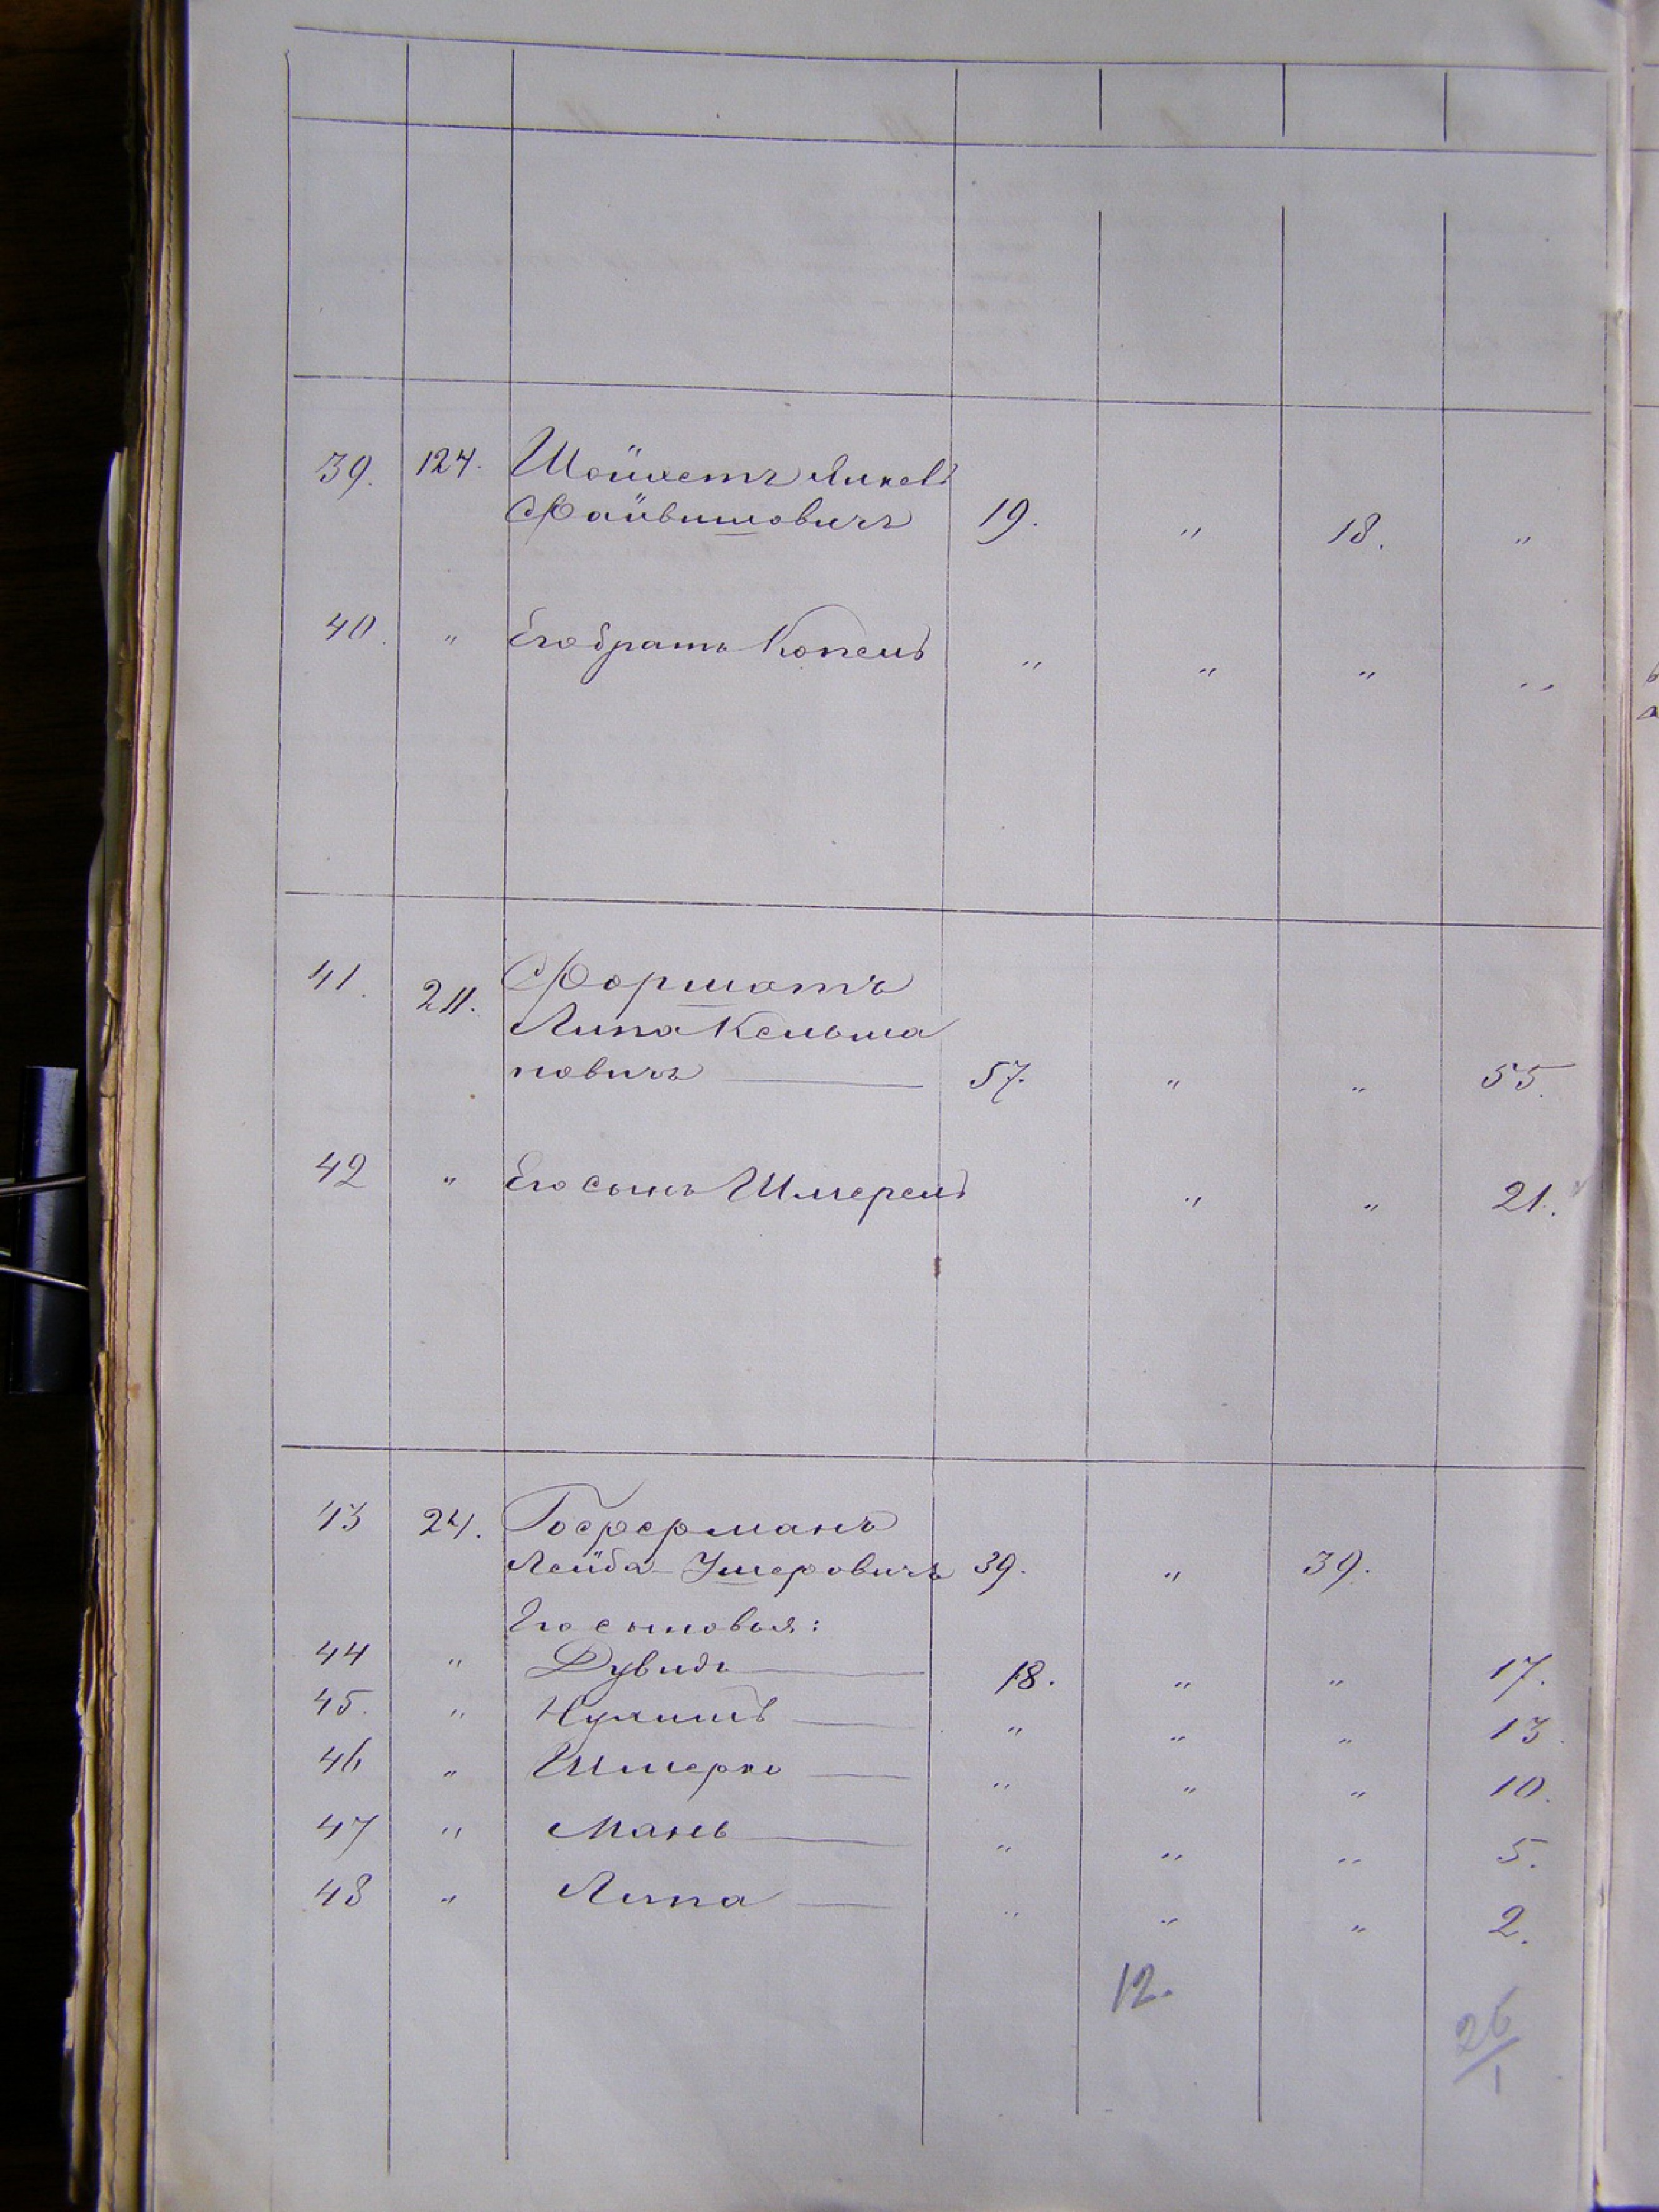 39. 124. Шойхетъ Янкель
Файвишовичъ 19. " 18. "
40. " Его братъ Копель " " " "
41. 211. Форшатъ
Липа Кельма
новичъ — 57. " " 55.
42 " Его сынъ Шмерель " " 21.
43 24. Гоферманъ
Лейба Ушеровичъ 39. " 39.
Его сыновья:
44 " Дувидъ — 18. " " 17.
45. " Нухимъ — " " " 13.
46 " Шмерко — " " " 10.
47 " Мань — " " " 5.
48 " Липа — " " " 2.
12.
26/1